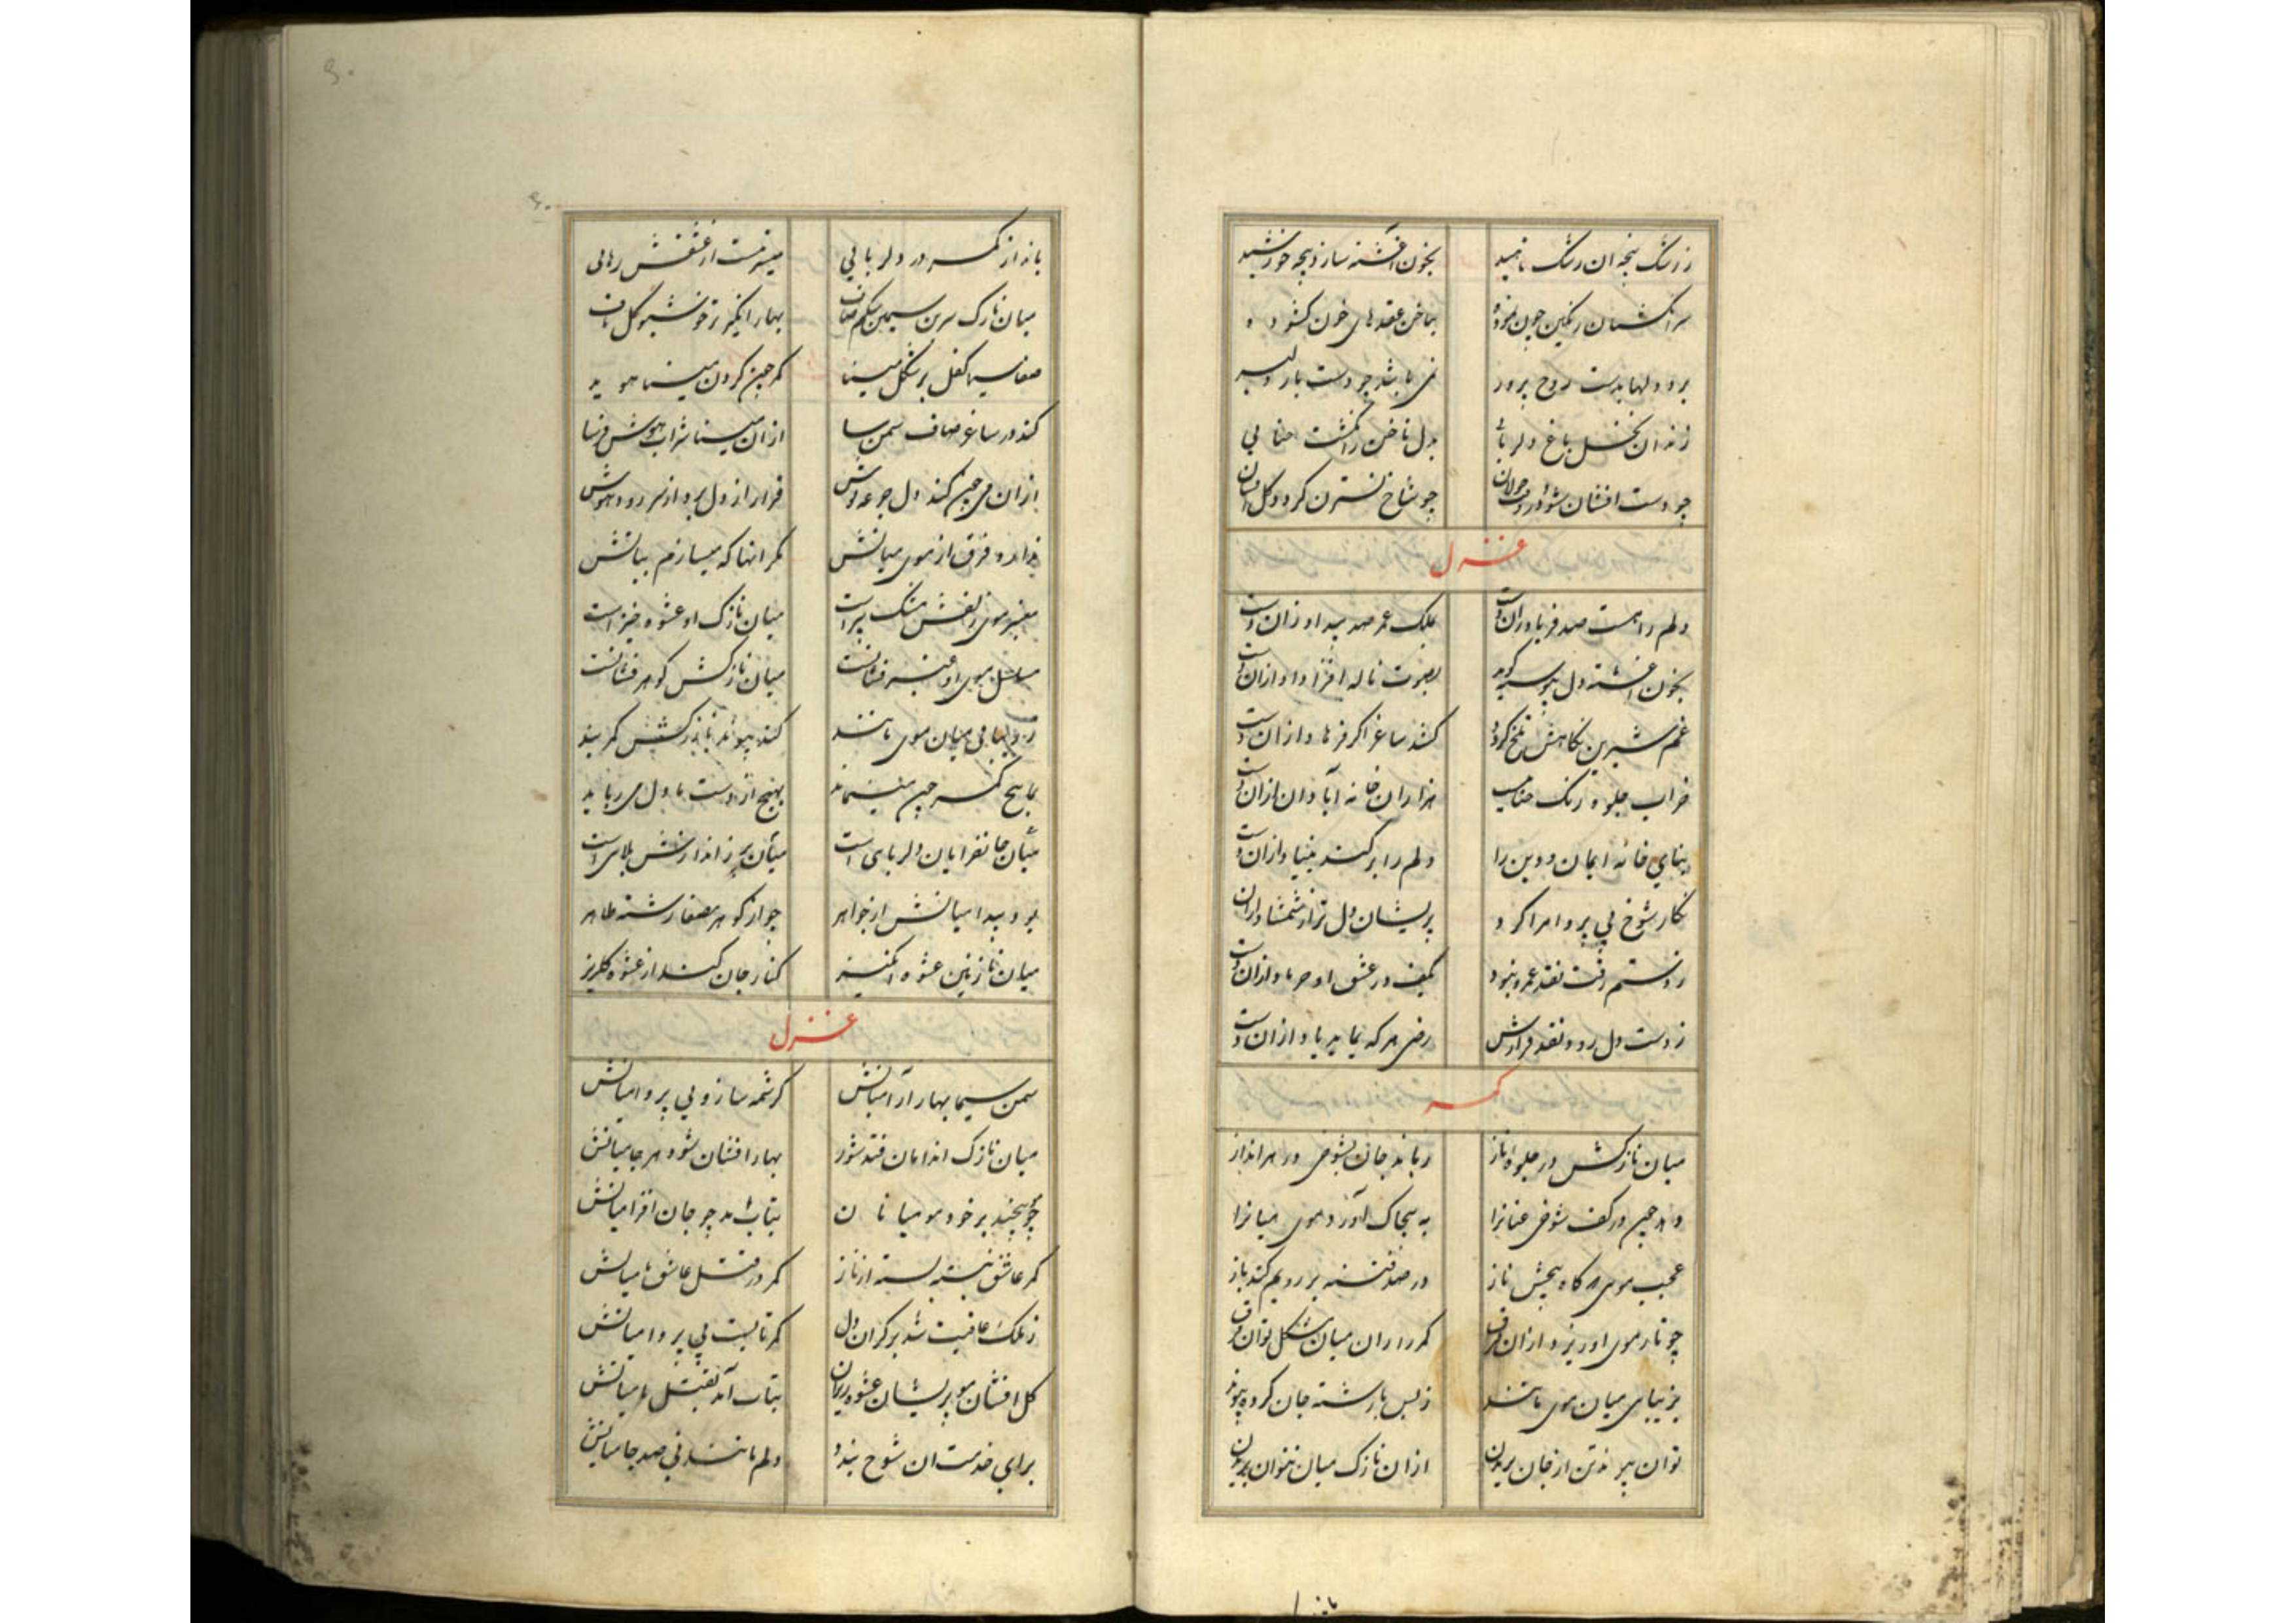 ز رشک پنجه ان رشک ناهید بخون آغشته سازد پنجه خورشید
سرانکشتان رنکین چون نموده بناخن عقدهای خون کشوده
برد دلها بدست روح پرور نمی باشد چو دست یار دلبر
زند ان نخل باغ دلربائی بدل ناخن ز انکشت حنایی
چو دست افشان شود در وقت جولان چو شاخ نسترن کردد کل افشان
غزل
دلم را هست صد فریاد ازان دست بملک عمر صد بیداد ازان دست
بخون آغشته دل بصوت ناله افزاداد ازان دست
غم شیرین نکاهش تلخ کرده کشد ساغر اکر فرهاد ازان دست
خراب جلوه رنک حنایی هزاران خانه آبادان ازان دست
بنای خانه ایمان و دین را دلم را برکند بنیاد ازان دست
نکار شوخ بی پروا مرا کرد پریشان دل تر از شمشاد ازان دست
ز دستم رفت نقد عمر و نبود بکف در عشق او جز باد ازان دست
ز دست دل رود نقد قرارش رضی هر که نماید یاد ازان دست
کمر
میان نازکش در جلوه ناز رباید جان بشوخی در هر انداز
دهد چین در کف شوخی عنانرا به پیچاک آورد موی میانرا
عجب موی که کاه پیچش ناز در صد فتنه بر رویم کند باز
چو تار موی او ریزد ازان فرق کمر را زان میان مشکل توان فرق
بزیبای میان موی مانند ز بس با رشته جان کرده پیوند
توان پیوند تن از جان بریدن ازان نازک میان نتوان بریدن
بانداز
بانداز کمر در دلربایی میسر نیست از عشقش رهایی
میان نازک سرین سیمین شکم صاف بهار انکیز و خوشبو کل ناف
صفا سیما کفل بر شکل مینا کمر چین کردن مینا هویدا
کند در ساغر صاف سمن سا ازان مینا شراب هوش فرسا
ازان می چین کند دل جرعه نوش قرار از دل برد از سر رود هوش
نداند فرق از موی میانش مکر انها که میسازم بیانش
معنبر موی زلفش مشک بیز است میان نازک او عشوه خیز است
موی او عنبر فشانست میان نازکش کوهر فشانست
ز زیبایی میان موی مانند کند پیوند با نازکش کمربند
بما هیچ کمر چین مینماید بهیچ از دست ما دل می رباید
میان جانفزایان دلربای است میان پر ز اندازش بلای است
بود پیدا میانش از جواهر چو از کوهر مصفا رشته ظاهر
میان نازنین عشوه انکیز کنار جان کند از عشوه کلریز
غزل
سمن سیما بهار آرا میانش کرشمه ساز و بی پروا میانش
میان نازک اندامان فتد شور بهار افشان شود هر جا میانش
چو پیچند بر خود مو میانان بتاب آمد چو جان افزا میانش
کمر عاشق بسته از ناز کمر در قتل عاشق با میانش
ز ملک عافیت شد بر کران دل کمر تا بست بی پروا میانش
کل افشان مو پریشان عشوه ریزان بتاب آمد بقتل ما میانش
برای خدمت ان شوخ بندد دلم مانند نی صد جا میانش